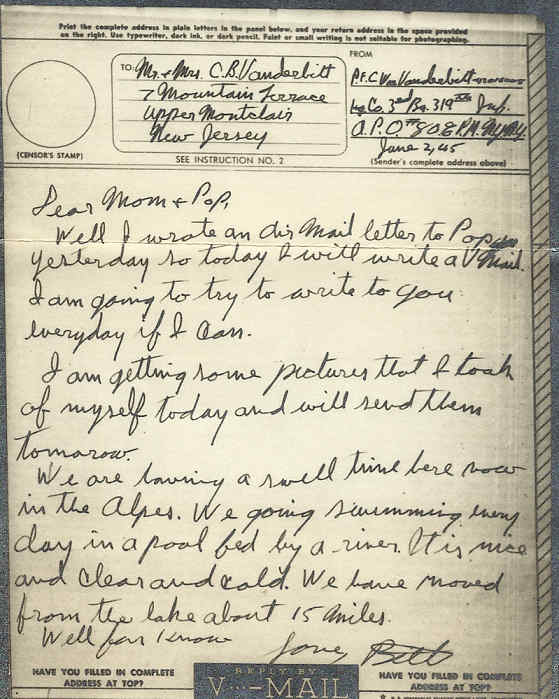 Print the complete address in plain letters in the panel below, and your return address in the space provided
on the right. Use typewriter, dark ink, or dark pencil. Faint or small writing is not suitable for photographing.
TO:
Mr. & Mrs. C.B. Vanderbilt
7 Mountain Terrace
Upper Montclair
New Jersey
(CENSOR'S STAMP)
SEE INSTRUCTION NO. 2
FROM
P.F.C. Wm Vanderbilt
Hq Co. 3rd Bn. 319th Inf.
A.P.O. #80 % P.M. N.Y. N.Y.
June 2, 45
(Sender's complete address above)
Dear Mom & Pop,
Well I wrote an air Mail letter to Pop
yesterday so today I will write a V Mail.
I am going to try to write to you
everyday if I can.
I am getting some pictures that I took
of myself today and will send them
tomorow.
We are having a swell time here now
in the Alpes. We going swimming every
day in a pool fed by a river. It is nice
and clear and cold. We have moved
from the lake about 15 miles.
Well for know
Love, Bill
HAVE YOU FILLED IN COMPLETE
ADDRESS AT TOP?
REPLY BY
V···-MAIL
HAVE YOU FILLED IN COMPLETE
ADDRESS AT TOP?